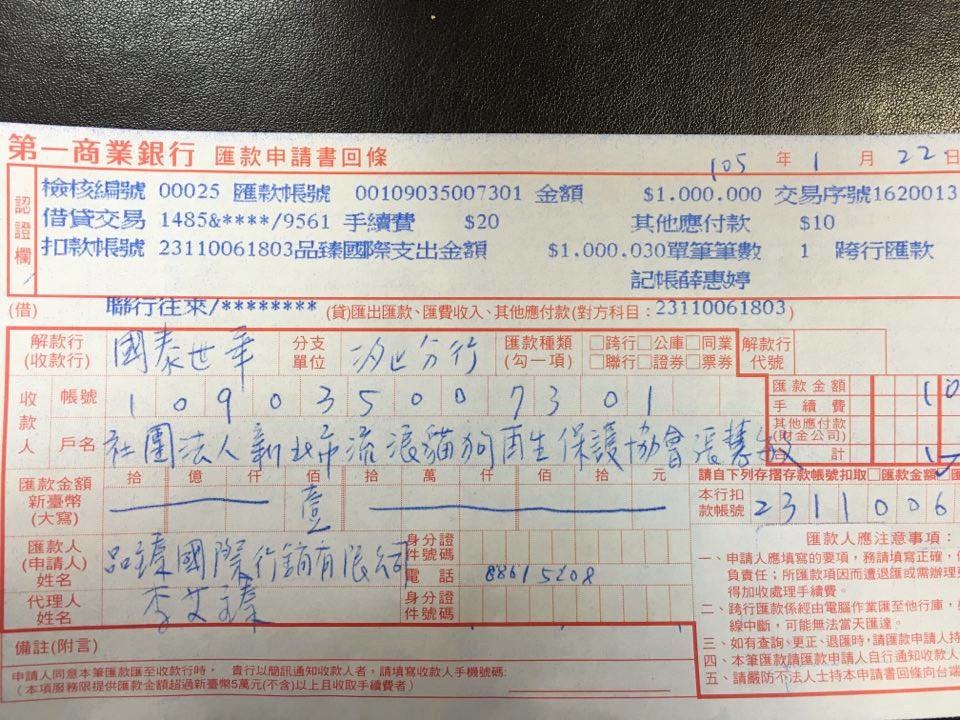 第一商業銀行 匯款申請書回條
105 年 1 月 22 日
認證欄
檢核編號 00025 匯款帳號 00109035007301 金額 $1.000.000 交易序號1620013
借貸交易 1485&****/9561 手續費 $20 其他應付款 $10
扣款帳號 23110061803品臻國際支出金額 $1.000.030單筆筆數 1 跨行匯款
記帳薛惠婷
(借) 聯行往來/******** (貸)匯出匯款、匯費收入、其他應付款(對方科目：23110061803)
解款行(收款行) 國泰世華 分支單位 汐止分行 匯款種類(勾一項) □跨行□公庫□同業□聯行□證券□票券 解款行代號
收款人 帳號 109035007301
戶名 社團法人新北市流浪貓狗再生保護協會張慧敏
匯款金額 10
手續費
其他應付款(財金公司)
合計
匯款金額新臺幣(大寫) 拾 億 仟 佰 拾 萬 仟 佰 拾 元
壹
請自下列存摺存款帳號扣取□匯款金額
本行扣款帳號 2311006
匯款人(申請人)姓名 品臻國際行銷有限公司 身分證件號碼
電話 88615208
代理人姓名 李艾臻 身分證件號碼
匯款人應注意事項：
一、申請人應填寫的要項，務請填寫正確，
負責任；所匯款項因而遭退匯或需辦理
得加收處理手續費。
二、跨行匯款係經由電腦作業匯至他行庫，
線中斷，可能無法當天匯達。
三、如有查詢、更正、退匯時，請匯款申請人持
四、本筆匯款請匯款申請人自行通知收款人
五、請嚴防不法人士持本申請書回條向台端
備註(附言)
申請人同意本筆匯款匯至收款行時， 貴行以簡訊通知收款人者，請填寫收款人手機號碼：
(本項服務限提供匯款金額超過新臺幣5萬元(不含)以上且收取手續費者)